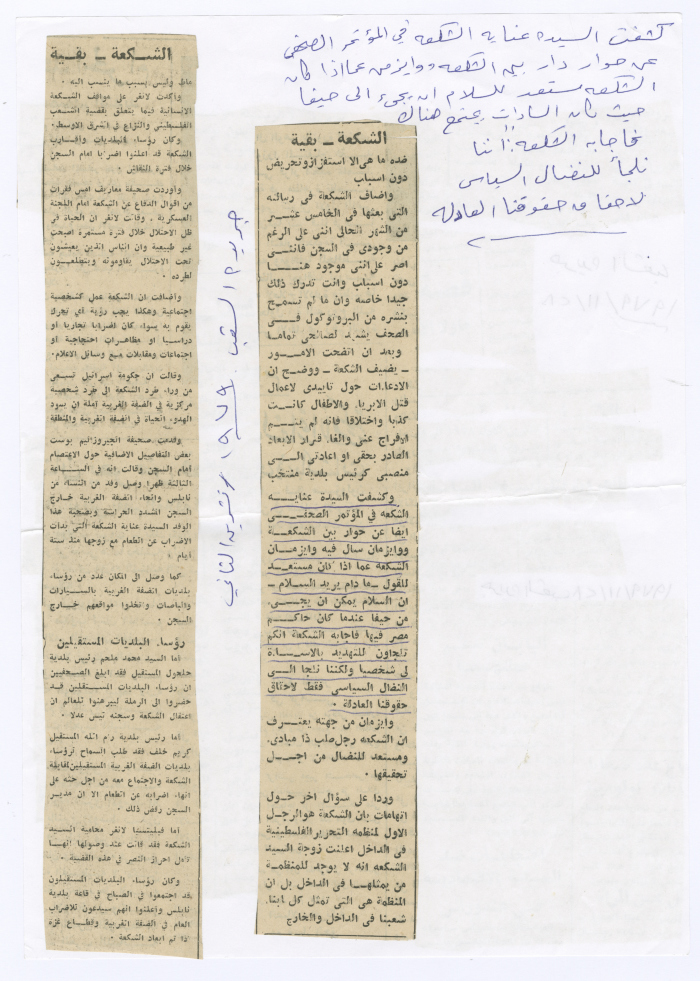 كشفت السيده عنايه الشكعه في المؤتمر الصحفي
عن حوار دار بين الشكعه ووايزمن عما اذا كان
الشكعه مستعد للسلام ان يجيء الى حيفا
حيث كان السادات يجتمع هناك
فاجابه الشكعه: اننا
نلجأ للنضال السياسي
لاحقاق حقوقنا العادله
الشكعة ــ بقية
ضده ما هي الا استفزاز وتحريض
دون اسباب
واضاف الشكعة في رسالته
التي بعثها في الخامس عشر
من الشهر الحالي انني على الرغم
من وجودي في السجن فانني
اصر على انني موجود هنا
دون اسباب وانت تدرك ذلك
جيدا خاصة وان ما لم تسمح
بنشره من البروتوكول في
الصحف يشهد لصالحي تماما
وبعد ان اتضحت الامور
ــ يضيف الشكعة ــ ووضح ان
الادعاءات حول تاييدي لاعمال
قتل الابرياء والاطفال كانت
كذبا واختلاقا فانه لم يتم
الافراج عني والغاء قرار الابعاد
الصادر بحقي او اعادتي الى
منصبي كرئيس بلدية منتخب
وكشفت السيدة عنايه
الشكعه في المؤتمر الصحفي
ايضا عن حوار بين الشكعة
ووايزمان سال فيه وايزمان
الشكعه عما اذا كان مستعد
للقول ــ ما دام يريد السلام ــ
ان السلام يمكن ان يجيء
من حيفا عندما كان حاكم
مصر فيها فاجابه الشكعة انكم
تلجاون للتهديد بالاساءة
لي شخصيا ولكننا نلجا الى
النضال السياسي فقط لاحقاق
حقوقنا العادلة ·
وايزمان من جهته يعترف
ان الشكعه رجل صلب ذا مبادىء
ومستعد للنضال من اجل
تحقيقها ·
وردا على سؤال اخر حول
اتهامات بان الشكعة هو الرجل
الاول لمنظمة التحرير الفلسطينية
في الداخل اعلنت زوجة السيد
الشكعه انه لا يوجد للمنظمة
من يمثلها في الداخل بل ان
المنظمة هي التي تمثل كل ابناء
شعبنا في الداخل والخارج
جريدة الشعب ١٩٧٩ تشرين الثاني
الشكعة ــ بقية
ماط وليس بسبب ما ينسب اليه ·
واكدت لانغر على مواقف الشكعة
الانسانية فيما يتعلق بقضية الشعب
الفلسطيني والنزاع في الشرق الاوسط·
وكان رؤساء البلديات واقارب
الشكعة قد اعلنوا اضرابا امام السجن
خلال فترة النقاش ·
واوردت صحيفة معاريف امس فقرات
من اقوال الدفاع عن الشكعة امام اللجنة
العسكرية ، وقالت لانغر ان الحياة في
ظل الاحتلال خلال فترة مستمرة اصبحت
غير طبيعية وان الناس الذين يعيشون
تحت الاحتلال يقاومونه ويتطلعون
لطرده ·
واضافت ان الشكعة عمل كشخصية
اجتماعية وهكذا يجب رؤية اي تحرك
يقوم به سواء كان اضرابا تجاريا او
دراسيا او مظاهرات احتجاجية او
اجتماعات ومقابلات مع وسائل الاعلام·
وقالت ان حكومة اسرائيل تسعى
من وراء طرد الشكعة الى طرد شخصية
مركزية في الضفة الغربية آملة ان يسود
الهدوء الحياة في الضفة الغربية والمنطقة
وقدمت صحيفة الجيروزاليم بوست
بعض التفاصيل الاضافية حول الاعتصام
امام السجن وقالت انه في الساعة
الثالثة ظهرا وصل وفد من النساء من
نابلس وانحاء الضفة الغربية خارج
السجن المشدد الحراسة وبصحبة هذا
الوفد السيدة عناية الشكعة التي بدات
الاضراب عن الطعام مع زوجها منذ ستة
ايام ·
كما وصل الى المكان عدد من رؤساء
بلديات الضفة الغربية بالسيارات
والباصات واتخذوا مواقعهم خارج
السجن ·
رؤساء البلديات المستقيلين
اما السيد محمد ملحم رئيس بلدية
حلحول المستقيل فقد ابلغ الصحفيين
ان رؤساء البلديات المستقلين قد
حضروا الى الرملة ليبرهنوا للعالم ان
اعتقال الشكعة وسجنه ليس عدلا ·
اما رئيس بلدية رام الله المستقيل
كريم خلف فقد طلب السماح لرؤساء
بلديات الضفة الغربية المستقيلين لمقابلة
الشكعة والاجتماع معه من اجل حثه على
انهاء اضرابه عن الطعام الا ان مدير
السجن رفض ذلك ·
اما فيليتسيا لانغر محامية السيد
الشكعة فقد قالت عند وصولها انها
تامل احراز النصر في هذه القضية ·
وكان رؤساء البلديات المستقيلون
قد اجتمعوا في الصباح في قاعة بلدية
نابلس واعلنوا انهم سيدعون للاضراب
العام في الضفة الغربية وقطاع غزة
اذا تم ابعاد الشكعة ·